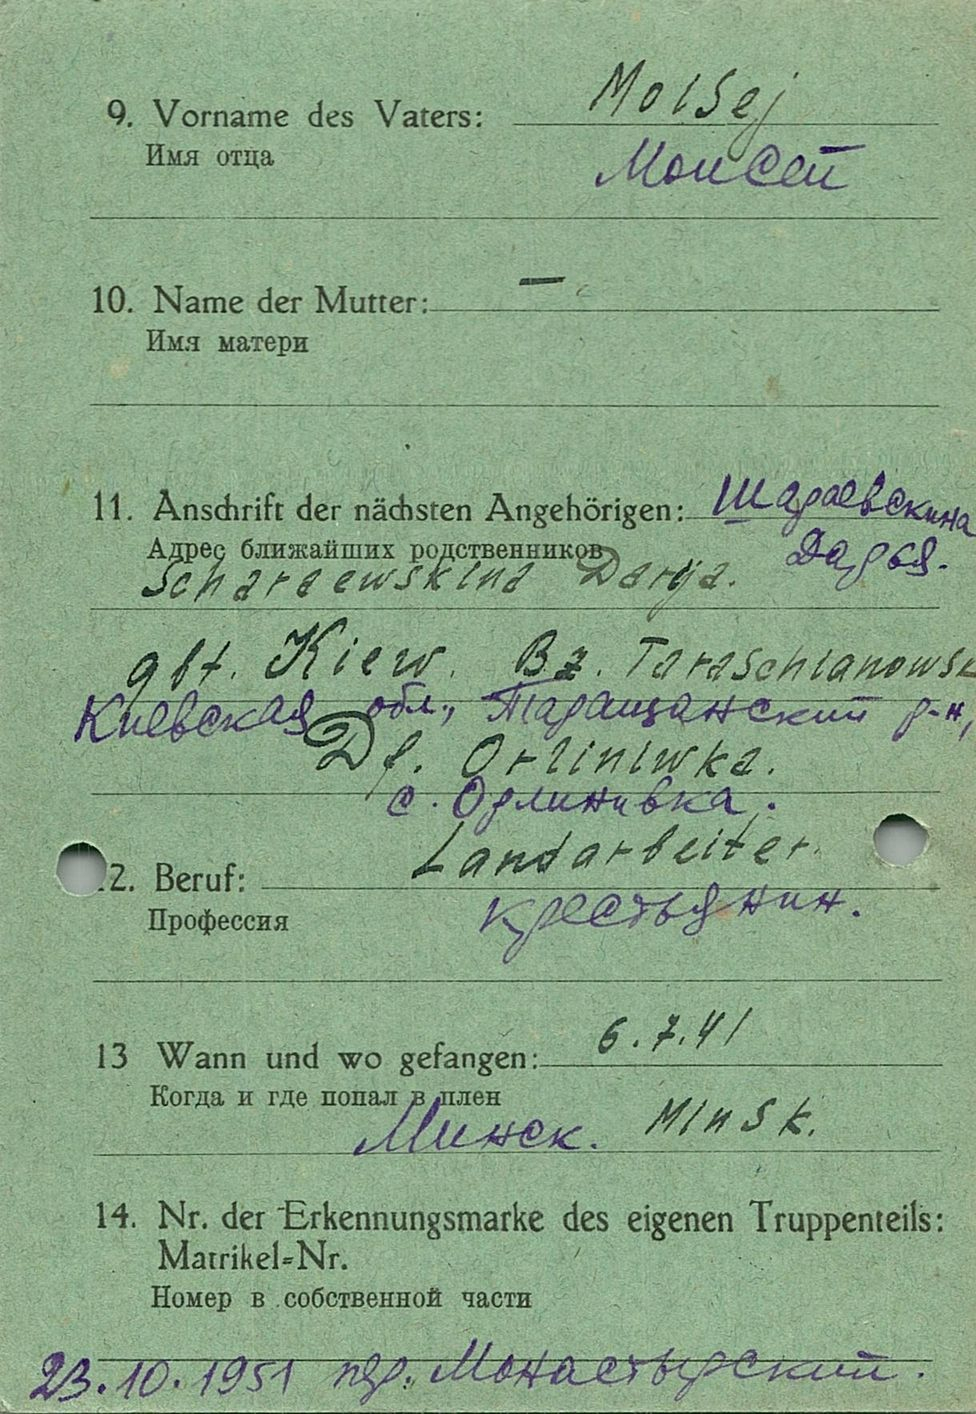 9. Vorname des Vaters: Moisej
Имя отца Моисей
10. Name der Mutter: —
Имя матери
11. Anschrift der nächsten Angehörigen: Шараевскина
Адрес ближайших родственников Дарья.
Scharaewskina Darja.
gbt. Kiew. Bz. Taraschtanowsk
Киевская обл., Таращанский р-н,
Df. Orliniwka.
с. Орлинивка.
12. Beruf: Landarbeiter.
Профессия крестьянин.
13 Wann und wo gefangen: 6.7.41
Когда и где попал в плен
Минск. Minsk.
14. Nr. der Erkennungsmarke des eigenen Truppenteils:
Matrikel-Nr.
Номер в собственной части
23.10.1951 пер. Монастырский.